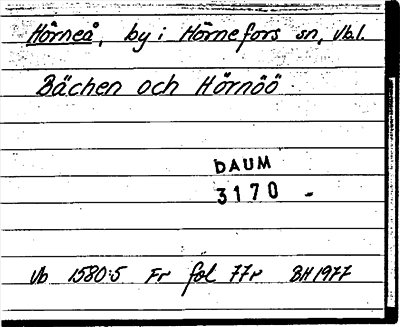 Hörneå, by i Hörnefors sn, Vb.l.
Bächen och Hörnöö
DAUM
3170 -
Vb 1580:5 Fr fol 77r BH 1977